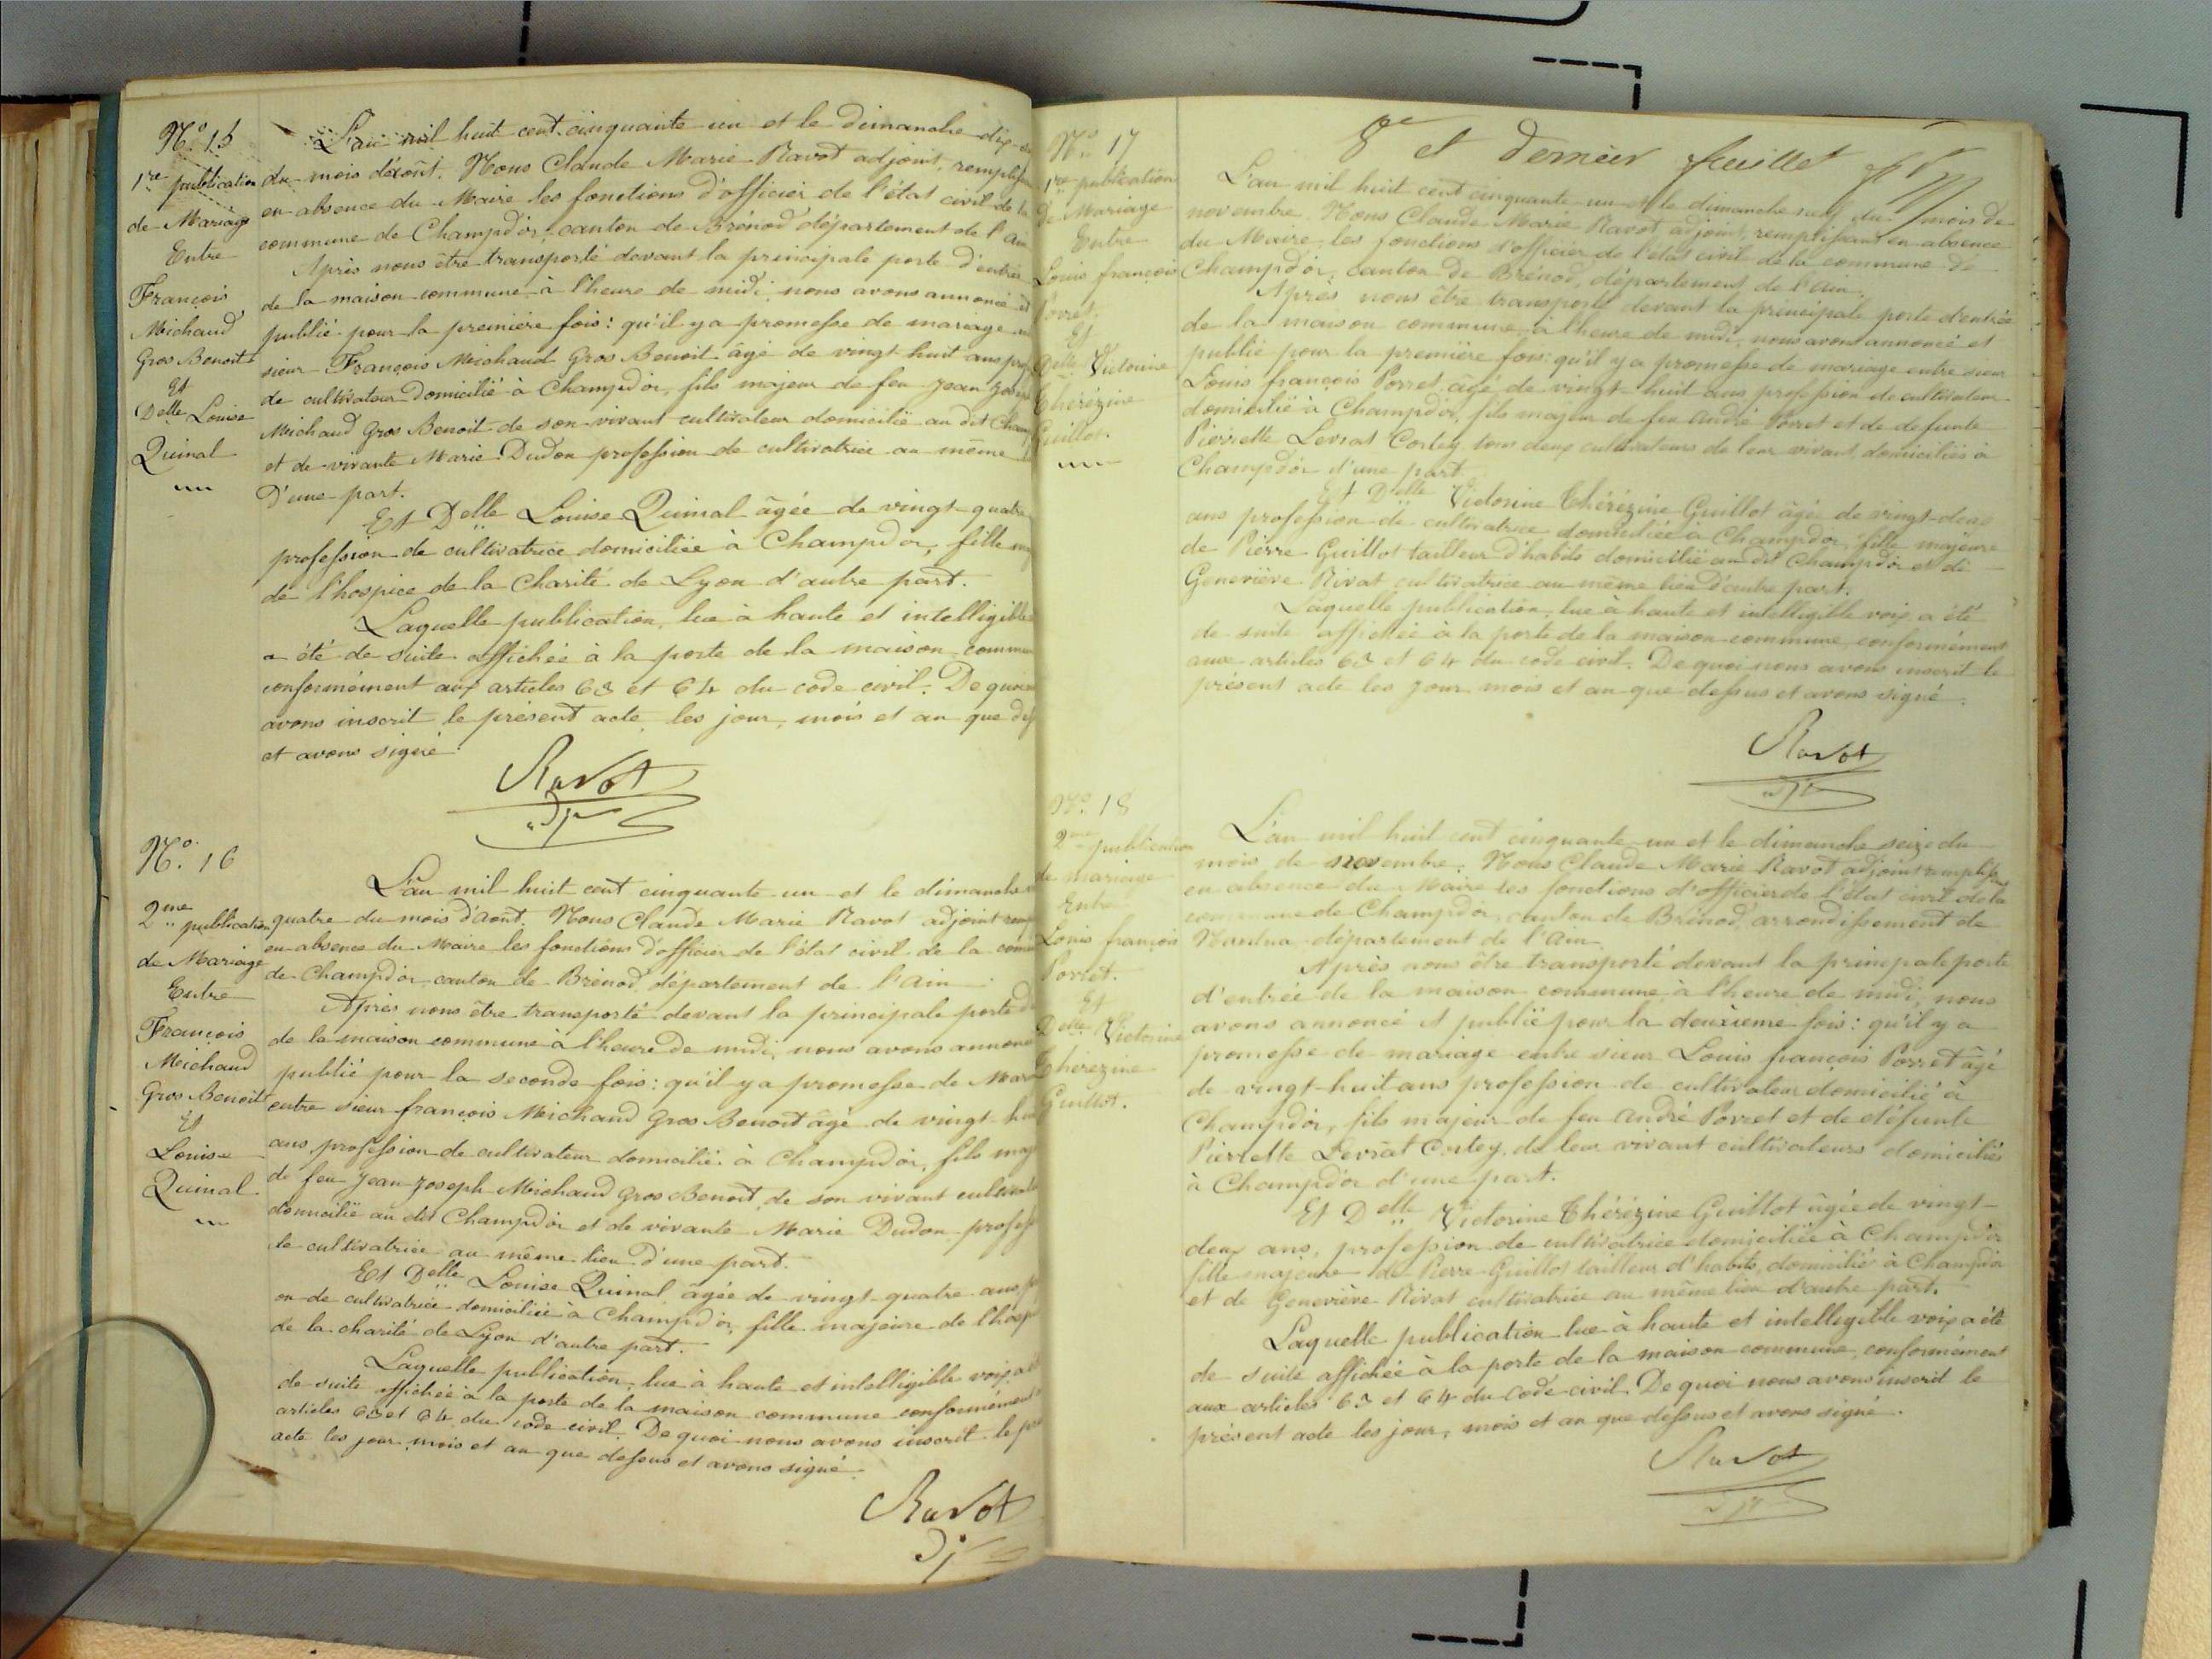 N.° 15
1re publication
de Mariage
Entre
François
Michaud
Gros Benoit
Et
Delle Louise
Quinal
L'an mil huit cent cinquante un et le dimanche dix-
du mois d'août. Nous Claude Marie Ravot adjoint, remplissant
en absence du Maire les fonctions d'officier de l'état civil de la
commune de Champdor, canton de Brénod département de l'Ain
Après nous être transporté devant la principale porte d'entrée
de la maison commune, à l'heure de midi, nous avons annoncé et
publié pour la première fois : qu'il y a promesse de mariage
sieur François Michaud Gros Benoit âgé de vingt huit ans
de cultivateur domicilié à Champdor, fils majeur de feu Jean Joseph
Michaud Gros Benoit de son vivant cultivateur domicilié au dit
et de vivante Marie Dudon profession de cultivatrice au même
D'une part.
Et Delle Louise Quinal âgée de vingt-quatre
profession de cultivatrice domiciliée à Champdor, fille
de l'hospice de la Charité de Lyon d'autre part.
Laquelle publication, lue à haute et intelligible
a été de suite affichée à la porte de la maison
conformément aux articles 63 et 64 du code civil. De quoi
avons inscrit le présent acte, les jour, mois et an que
et avons signé
Ravot
adj
N.° 16
2me publication
de Mariage
Entre
François
Michaud
Gros Benoit
Et
Louise
Quinal
L'an mil huit cent cinquante un et le dimanche
quatre du mois d'août. Nous Claude Marie Ravot adjoint
en absence du Maire les fonctions d'officier de l'état civil de la
de Champdor, canton de Brénod, département de l'Ain
Après nous être transporté devant la principale porte
de la maison commune à l'heure de midi, nous avons annoncé
publié pour la seconde fois : qu'il y a promesse de
entre sieur françois Michaud Gros Benoit âgé de vingt
ans, profession de cultivateur domicilié à Champdor, fils
de feu Jean Joseph Michaud Gros Benoit, de son vivant
domicilié au dit Champdor et de vivante Marie Dudon
de cultivatrice au même lieu d'une part.
Et Delle Louise Quinal âgée de vingt-quatre ans,
on de cultivatrice domiciliée à Champdor, fille majeure de
de la charité de Lyon d'autre part.
Laquelle publication, lue à haute et intelligible voix
de suite affichée à la porte de la maison commune conformément
articles 63 et 64 du code civil. De quoi nous avons inscrit le
acte les jour, mois et an que dessus et avons signé
Ravot
adj
8e et dernier feuillet
N.° 17
1re publication
de Mariage
Entre
Louis françois
Porret.
Et
Delle Victorine
Thérézine
Guillot.
L'an mil huit cent cinquante un et le dimanche neuf du mois de
novembre. Nous Claude Marie Ravot adjoint, remplissant en absence
du Maire, les fonctions d'officier de l'état civil de la commune de
Champdor, canton de Brénod, département de l'Ain.
Après nous être transporté devant la principale porte d'entrée
de la maison commune, à l'heure de midi, nous avons annoncé et
publié pour la première fois : qu'il y a promesse de mariage entre sieur
Louis françois Porret, âgé de vingt-huit ans profession de cultivateur
domicilié à Champdor, fils majeur de feu André Porret et de défunte
Pierrette Levrat Cortey tous deux cultivateurs de leur vivant, domiciliés à
Champdor d'une part.
Et Delle Victorine Thérézine Guillot âgée de vingt-deux
ans profession de cultivatrice domiciliée à Champdor, fille majeure
de Pierre Guillot tailleur d'habits domicilié au dit Champdor et de
Geneviève Rivat cultivatrice au même lieu d'autre part.
Laquelle publication, lue à haute et intelligible voix a été
de suite affichée à la porte de la maison commune, conformément
aux articles 63 et 64 du code civil. De quoi nous avons inscrit le
présent acte les jour, mois et an que dessus et avons signé.
Ravot
adj
N.° 18
2me publication
de mariage
Entre
Louis françois
Porret.
Et
Delle Victorine
Thérézine
Guillot.
L'an mil huit cent cinquante un et le dimanche seize du
mois de novembre. Nous Claude Marie Ravot adjoint remplissant
en absence du Maire les fonctions d'officier de l'état civil de la
commune de Champdor, canton de Brénod, arrondissement de
Nantua département de l'Ain.
Après nous être transporté devant la principale porte
d'entrée de la maison commune, à l'heure de midi, nous
avons annoncé et publié pour la deuxième fois : qu'il y a
promesse de mariage entre sieur Louis françois Porret âgé
de vingt-huit ans profession de cultivateur domicilié à
Champdor, fils majeur de feu André Porret et de défunte
Pierrette Levrat Cortey, de leur vivant cultivateurs domiciliés
à Champdor d'une part.
Et Delle Victorine Thérézine Guillot âgée de vingt-
deux ans, profession de cultivatrice domiciliée à Champdor
fille majeure de Pierre Guillot tailleur d'habits, domicilié à Champdor
et de Geneviève Rivat cultivatrice au même lieu d'autre part.
Laquelle publication lue à haute et intelligible voix a été
de suite affichée à la porte de la maison commune, conformément
aux articles 63 et 64 du code civil. De quoi nous avons inscrit le
présent acte les jour, mois et an que dessus et avons signé.
Ravot
adj